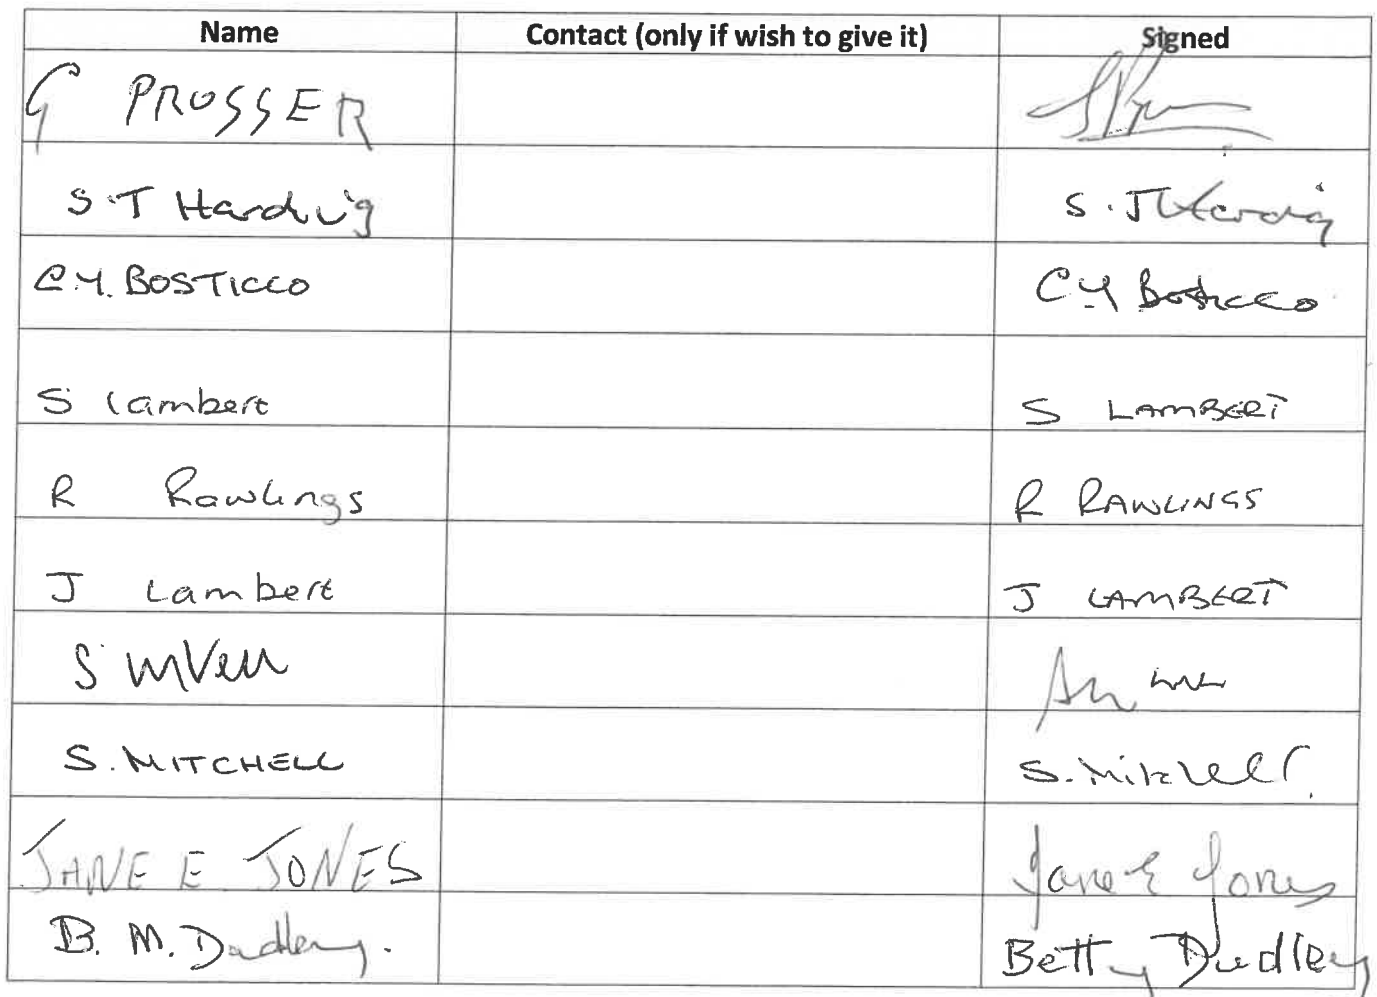 Name Contact (only if wish to give it) Signed
G PROSSER
S.T Harding S. T Harding
C.Y. BOSTICCO C Y Bosticco
S Lambert S LAMBERT
R Rawlings R RAWLINGS
J Lambert J LAMBERT
S
S. MITCHELL S. Mitchell
JANE E JONES Jane E Jones
B. M. Dudley. Betty Dudley